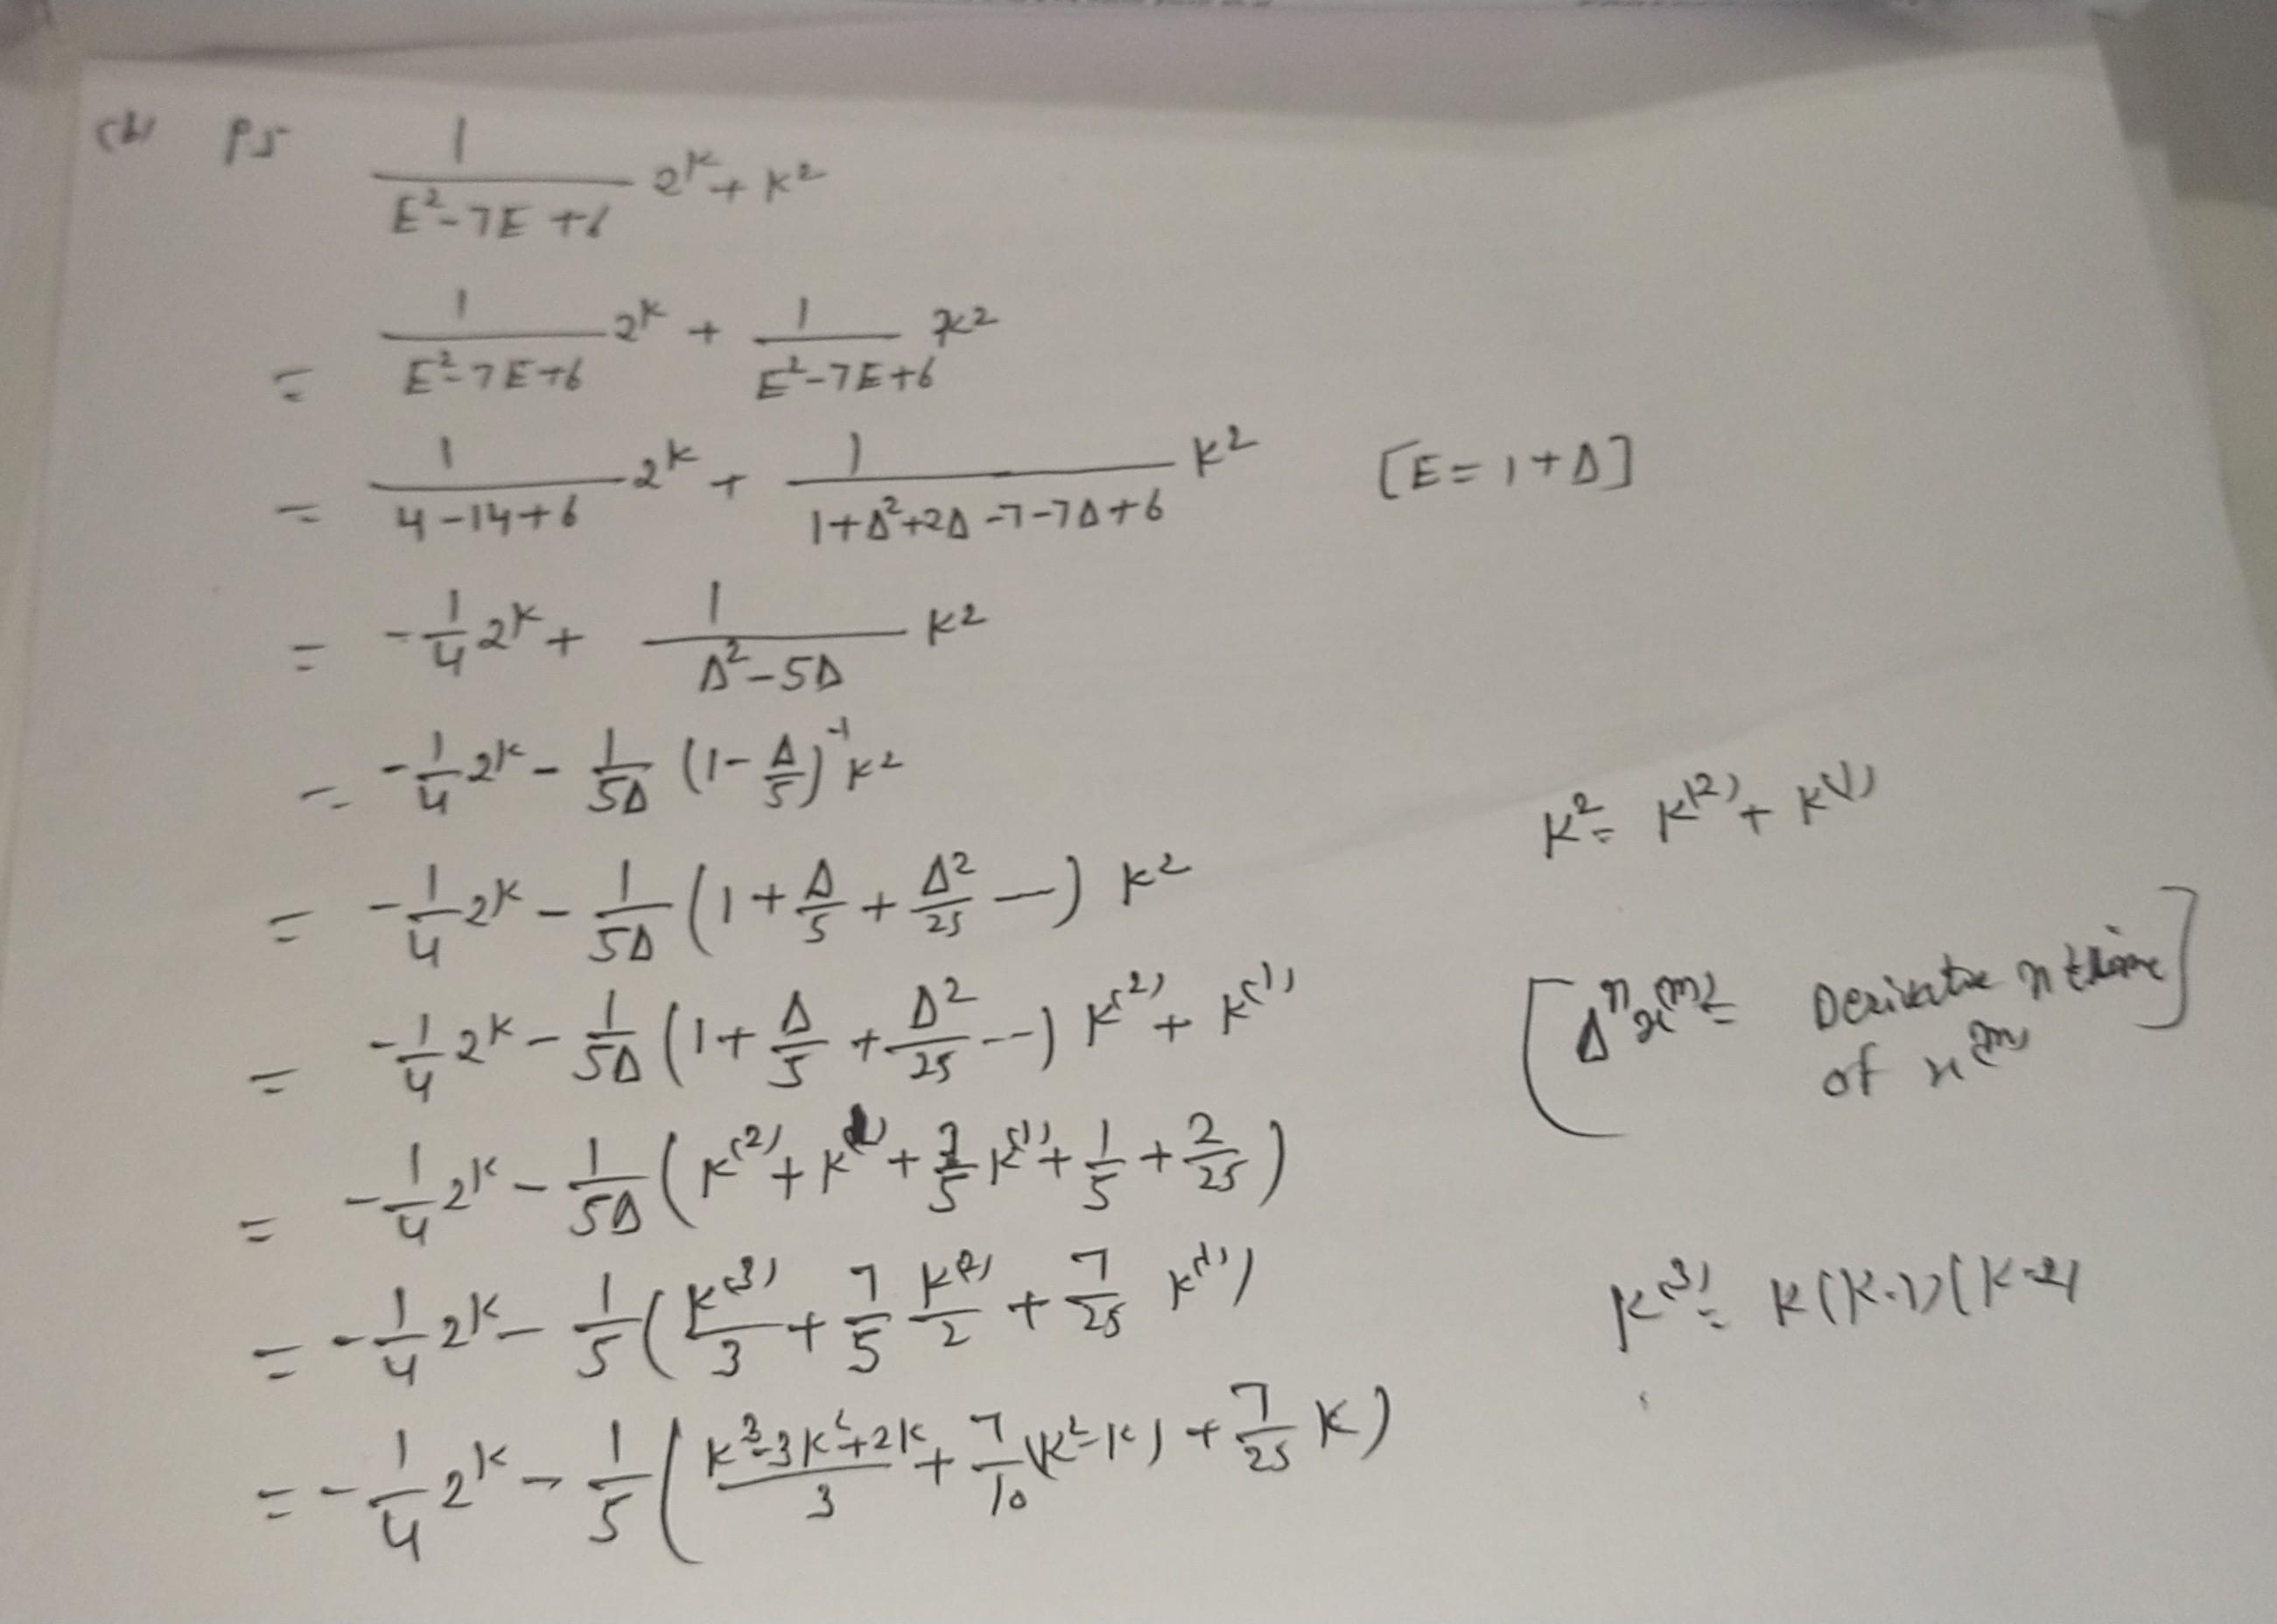 (b) PS 1/(E²-7E+6) 2^k + k²
= 1/(E²-7E+6) 2^k + 1/(E²-7E+6) k²
= 1/(4-14+6) 2^k + 1/(1+Δ²+2Δ-7-7Δ+6) k² [E=1+Δ]
= -1/4 2^k + 1/(Δ²-5Δ) k²
= -1/4 2^k - 1/5Δ (1-Δ/5)^-1 k²
k² = k^(2) + k^(1)
= -1/4 2^k - 1/5Δ (1+Δ/5+Δ²/25 --) k²
= -1/4 2^k - 1/5Δ (1+Δ/5+Δ²/25 --) k^(2) + k^(1)
[Δ^n x^(m) = Derivative n time
of x^(m)]
= -1/4 2^k - 1/5Δ (k^(2) + k^(1) + 2/5 k^(1) + 1/5 + 2/25)
= -1/4 2^k - 1/5 (k^(3)/3 + 7/5 k^(2)/2 + 7/25 k^(1))
k^(3) = k(k-1)(k-2)
= -1/4 2^k - 1/5 ((k³-3k²+2k)/3 + 7/10 (k²-k) + 7/25 k)